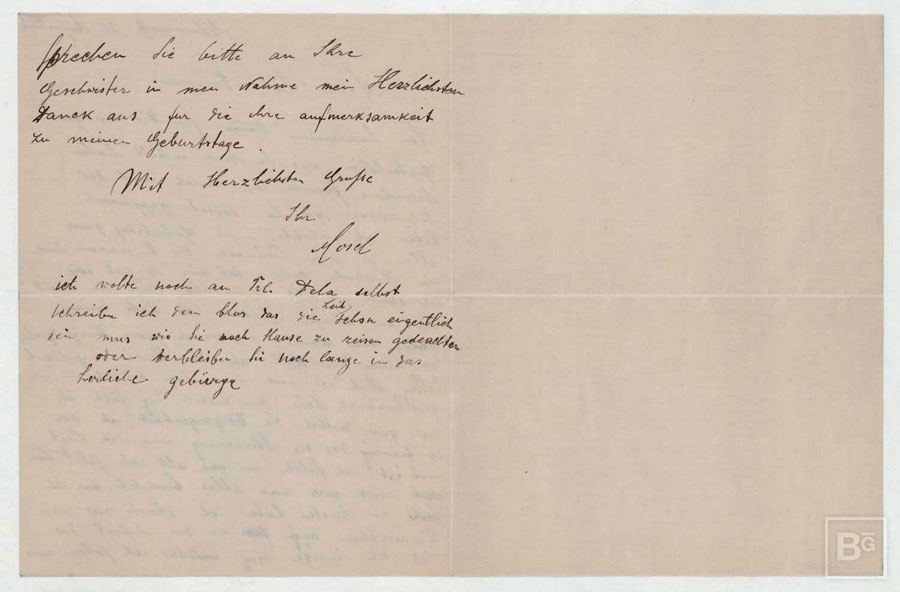 Sprechen Sie bitte an Ihre
Geschwister in mein Nahme mein Herzlichsten
Danck aus fur die ihre aufmerksamkeit
zu meinen Geburtstage.
Mit Herzlichsten Gruße
Ihr
Mosel
ich wolte noch an Frl. Dela selbst
schreiben ich den blos das die Zeit schon eigentlich
sein mus wo Sie nach Hause zu reisen gedeachten
oder verbleiben Sie noch lange in das
herliche gebürge
BG